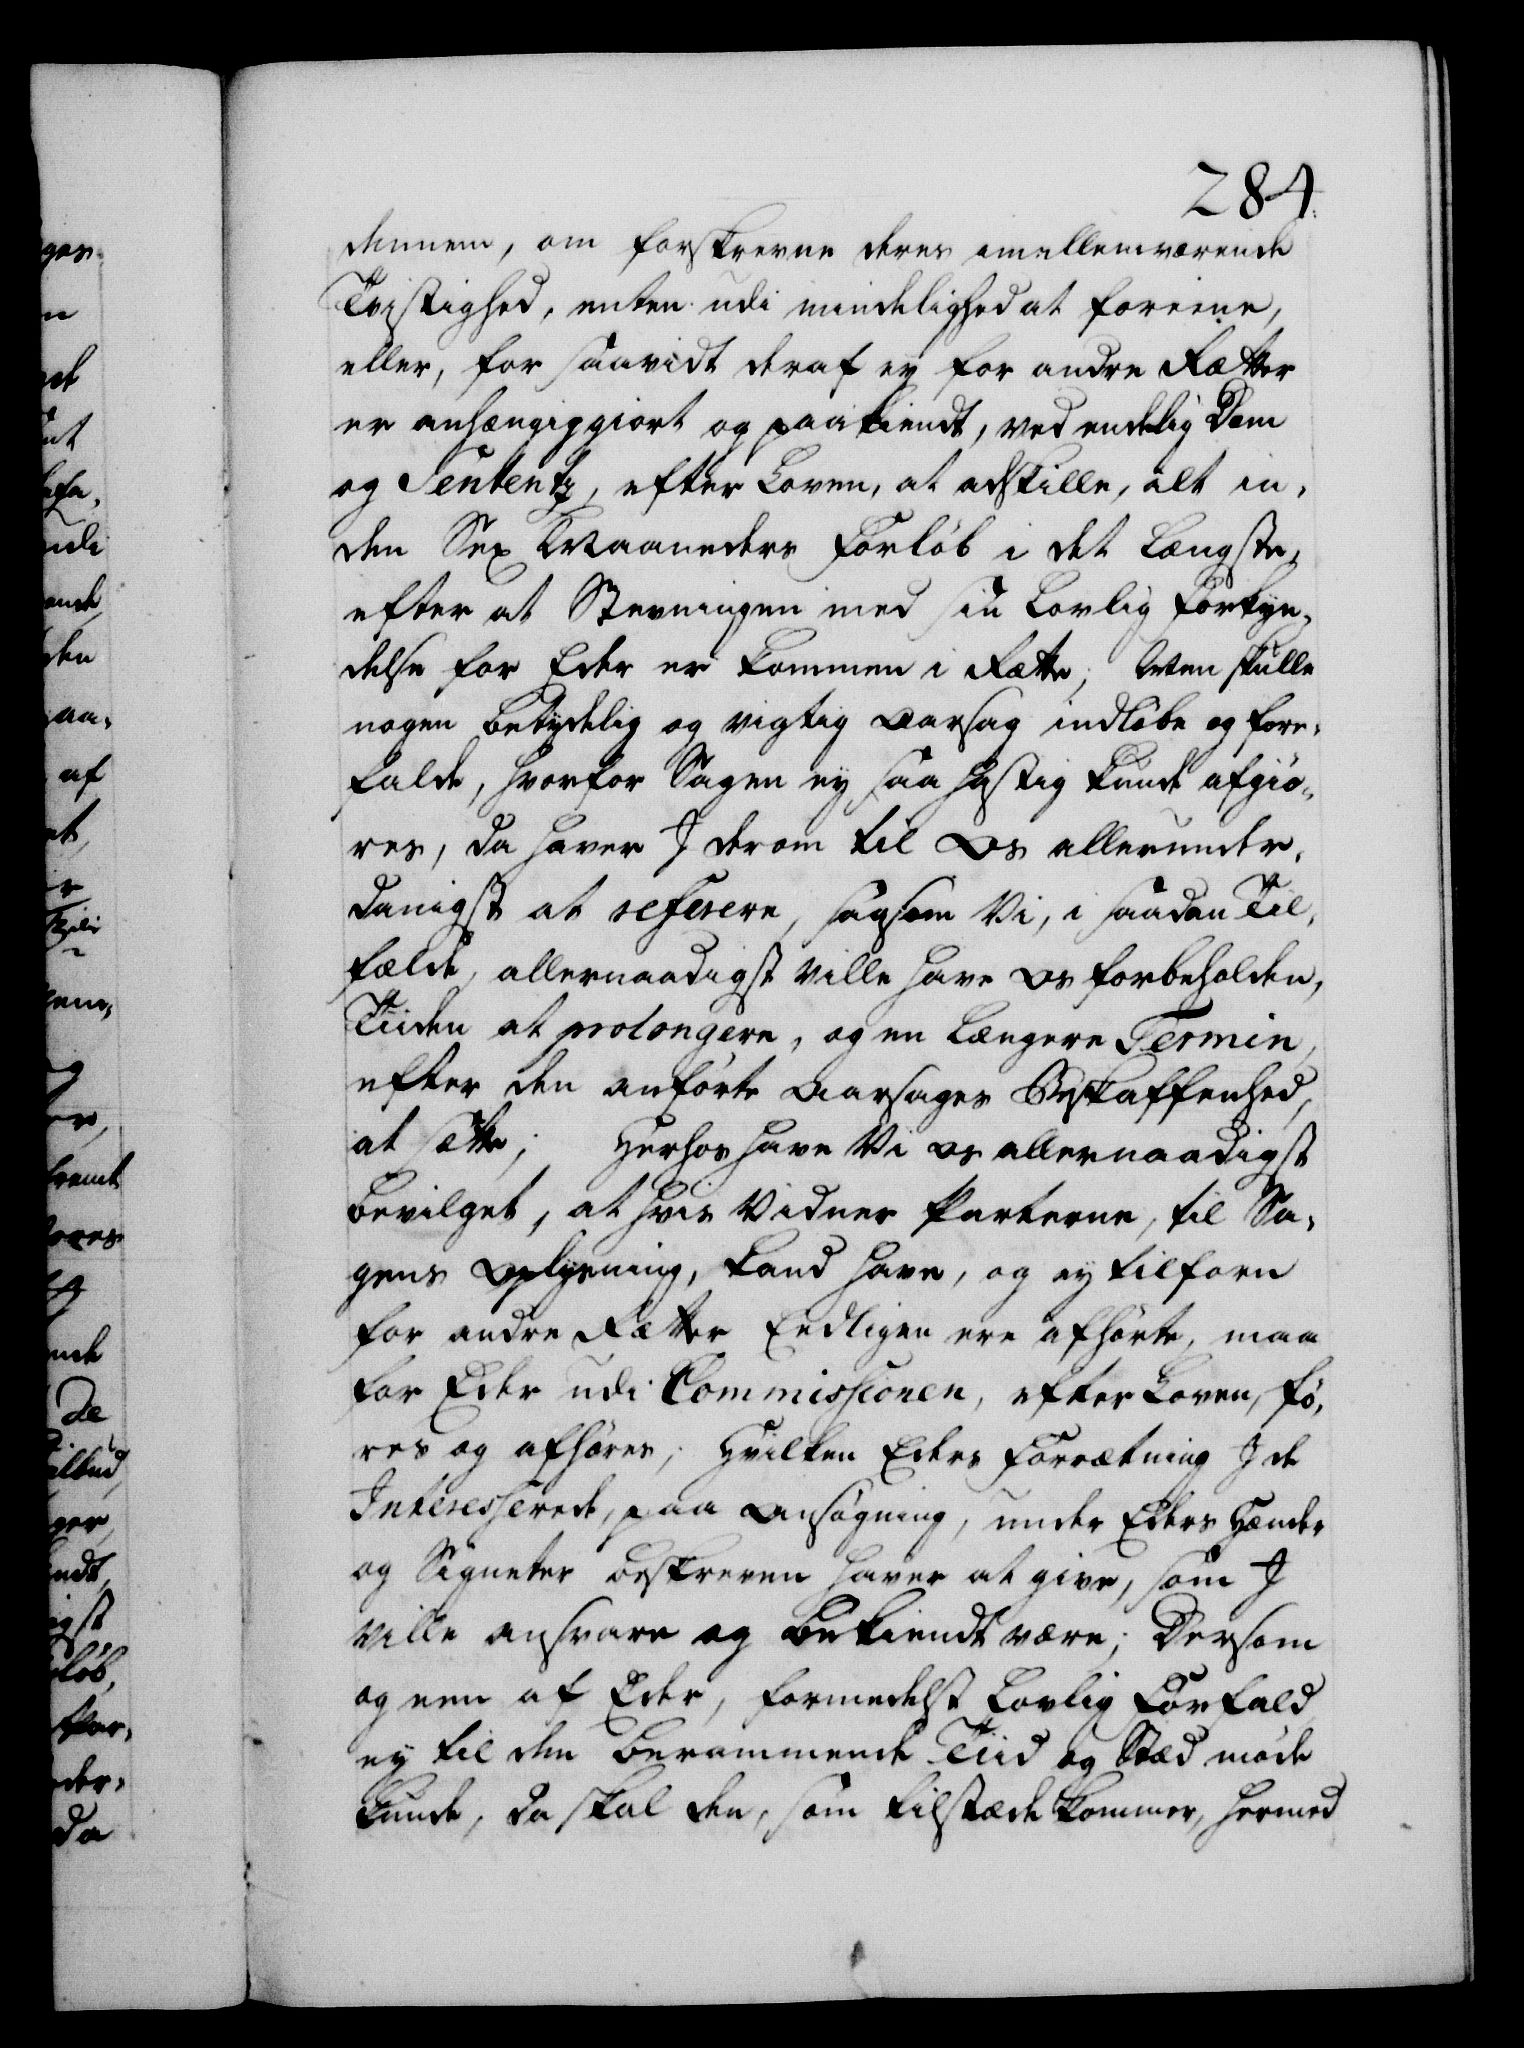 284.
dennem, om forskrevne deres imellemværende
Tvistighed, enten udi mindelighed at foreene,
eller, for saavidt deraf ey for andre Rætter
er anhængiggiort og paakiendt, ved endelig Dom
og Sententz, efter Loven, at adskille, alt in-
den Sex Maaneders Forløb i det Længste,
efter at Stevningen med sin Lovlig Forkyn-
delse for Eder er kommen i Rætte; Men skulle
nogen betydelig og vigtig Aarsag indløbe og fore-
falde, hvorfor Sagen ey saa hastig kunde afgiø-
res, da haver I derom til Os allerunder-
danigst at referere, saasom Vi, i saadan Til-
fælde, allernaadigst ville have Os forbeholden,
Tiiden at prolongere, og en Længere Termin,
efter den anførte Aarsages Beskaffenhed,
at sætte; Herhos have Vi Os allernaadigst
bevilget, at hvis Vidner Parterne, til Sa-
gens Oplysning, kand have, og ey tilforn
for andre Rætter Eedligen ere afhørte, maa
for Eder udi Commissionen, efter Loven, fø-
res og afhøres; Hvilken Eders Forrætning I de
Interesserede, paa Ansøgning, under Eders Hænder
og Signeter beskreven haver at give, som I
ville ansvare og bekiendt være; Dersom
og een af Eder, formedelst Lovlig Forfald
ey til den berammende Tiid og Stæd møde
kunde, da skal den, som tilstæde kommer, hermed